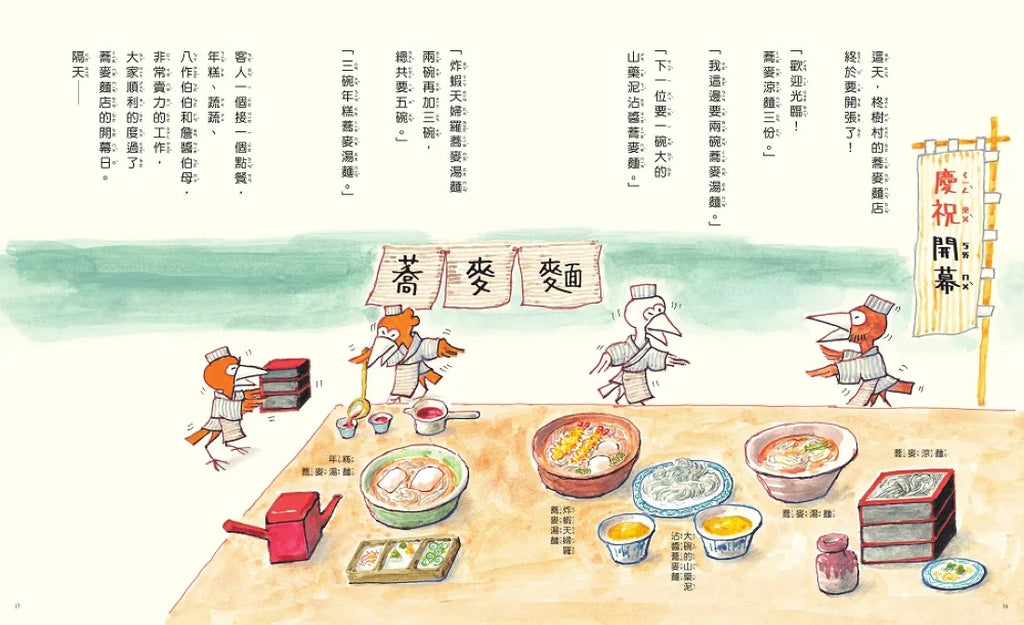 這天，柊樹村的蕎麥麵店
終於要開張了！
「歡迎光臨！
蕎麥涼麵三份。」
「我這邊要兩碗蕎麥湯麵。」
「下一位要一碗大的
山藥泥沾醬蕎麥麵。」
「炸蝦天婦羅蕎麥湯麵
兩碗再加三碗，
總共要五碗。」
「三碗年糕蕎麥湯麵。」
客人一個接一個點餐，
年糕、蔬蔬、
八作伯伯和詹醬伯母，
非常賣力的工作，
大家順利的度過了
蕎麥麵店的開幕日。
隔天——
慶祝開幕
ㄑㄧㄥˋ ㄓㄨˋ ㄎㄞ ㄇㄨˋ
蕎麥麵
蕎麥涼麵
蕎麥湯麵
大碗的山藥泥
沾醬蕎麥麵
炸蝦天婦羅
蕎麥湯麵
年糕
蕎麥湯麵
37
36